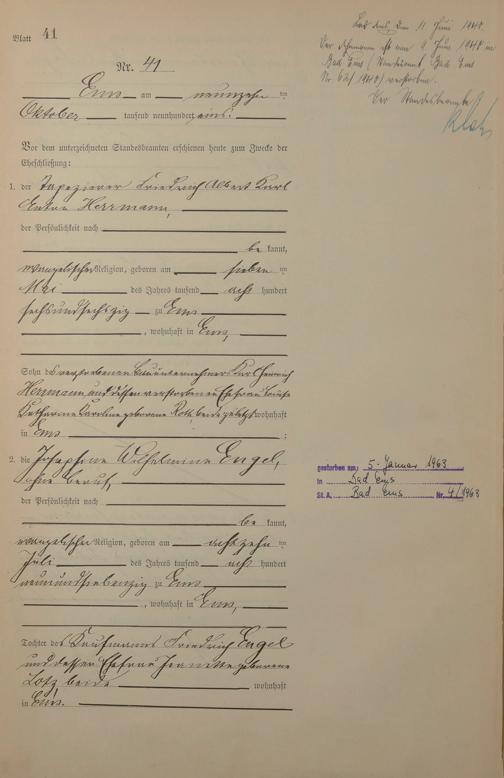 Blatt 41
Bad Ems, den 11. Juni 1948.
Der Ehemann ist am 9. Juni 1948 in
Bad Ems (Standesamt Bad Ems
Nr. 62/1948) verstorben.
Der Standesbeamte
Nr. 41
Ems am neunzehn ten
Oktober tausend neunhundert eins.
Vor dem unterzeichneten Standesbeamten erschienen heute zum Zwecke der
Eheschließung:
1. der Tapezierer Friedrich Albert Karl
Anton Herrmann,
der Persönlichkeit nach
be kannt,
evangelischer Religion, geboren am sieben ten
Mai des Jahres tausend acht hundert
sechsundsechzig zu Ems
, wohnhaft in Ems,
Sohn des verstorbenen Bauunternehmers Karl Heinrich
Herrmann und dessen verstorbenen Ehefrau Louise
Katharine Karoline geborene Roth, beide zuletzt wohnhaft
in Ems ;
2. die Josephine Wilhelmine Engel,
ohne Beruf,
der Persönlichkeit nach
be kannt,
evangelischer Religion, geboren am achtzehn ten
Juli des Jahres tausend acht hundert
neunundsiebenzig zu Ems
, wohnhaft in Ems,
gestorben am: 5. Januar 1963
in Bad Ems
St. A. Bad Ems Nr. 4/1963
Tochter des Kaufmanns Friedrich Engel
und dessen Ehefrau Jeanette geborene
Lotz, beide wohnhaft
in Ems.